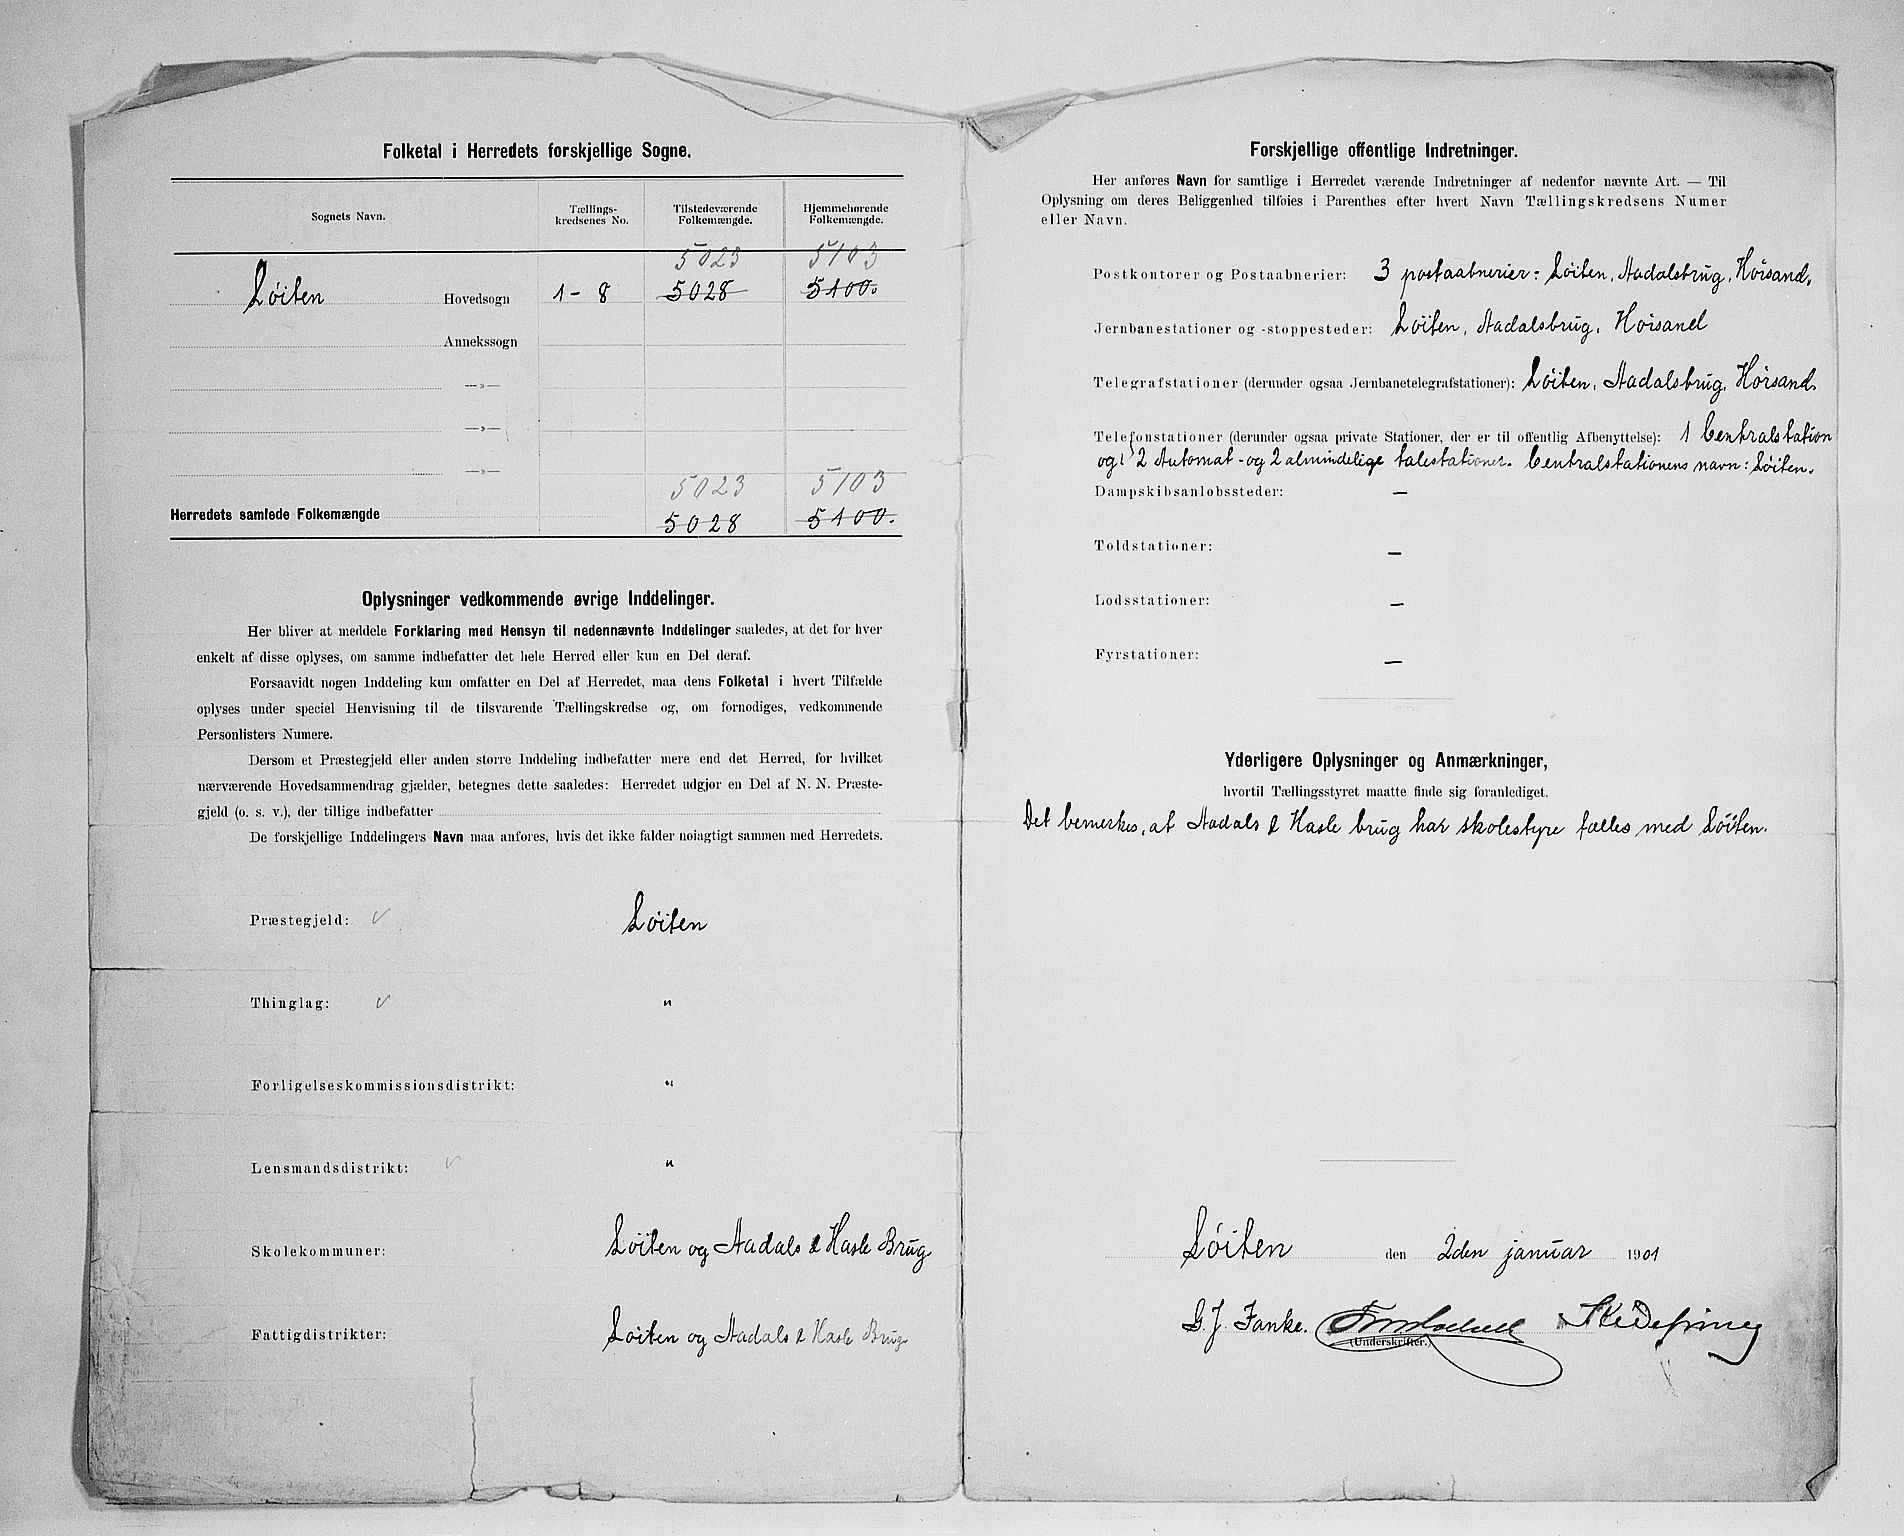 Folketal i Herredets forskjellige Sogne.
Sognets Navn. Tællings-kredsenes No. Tilstedeværende Folkemængde. Hjemmehørende Folkemængde.
5023 5103
Löiten Hovedsogn 1-8 5028 5100.
Annekssogn
—»—
—»—
—»—
5023 5103
Herredets samlede Folkemængde 5028 5100.
Oplysninger vedkommende øvrige Inddelinger.
Her bliver at meddele Forklaring med Hensyn til nedennævnte Inddelinger saaledes, at det for hver
enkelt af disse oplyses, om samme indbefatter det hele Herred eller kun en Del deraf.
Forsaavidt nogen Inddeling kun omfatter en Del af Herredet, maa dens Folketal i hvert Tilfælde
oplyses under speciel Henvisning til de tilsvarende Tællingskredse og, om fornødiges, vedkommende
Personlisters Numere.
Dersom et Præstegjeld eller anden større Inddeling indbefatter mere end det Herred, for hvilket
nærværende Hovedsammendrag gjælder, betegnes dette saaledes: Herredet udgjør en Del af N. N. Præste-
gjeld (o. s. v.), der tillige indbefatter
De forskjellige Inddelingers Navn maa anføres, hvis det ikke falder nøiagtigt sammen med Herredets.
Præstegjeld: ✓ Löiten
Thinglag: ✓ "
Forligelseskommissionsdistrikt: "
Lensmandsdistrikt: ✓ "
Skolekommuner: Löiten og Aadals & Hasle Brug
Fattigdistrikter: Löiten og Aadals & Hasle Brug
Forskjellige offentlige Indretninger.
Her anføres Navn for samtlige i Herredet værende Indretninger af nedenfor nævnte Art. — Til
Oplysning om deres Beliggenhed tilføies i Parenthes efter hvert Navn Tællingskredsens Numer
eller Navn.
Postkontorer og Postaabnerier: 3 postaabnerier: Löiten, Aadalsbrug, Hörsand.
Jernbanestationer og -stoppesteder: Löiten, Aadalsbrug, Hörsand
Telegrafstationer (derunder ogsaa Jernbanetelegrafstationer): Löiten, Aadalsbrug, Hörsand.
Telefonstationer (derunder ogsaa private Stationer, der er til offentlig Afbenyttelse): 1 Centralstation
og 2 Automat- og 2 almindelige talestationer. Centralstationens navn: Löiten.
Dampskibsanløbssteder: —
Toldstationer: —
Lodsstationer: —
Fyrstationer: —
Yderligere Oplysninger og Anmærkninger,
hvortil Tællingsstyret maatte finde sig foranlediget.
Det bemerkes, at Aadals & Hasle brug har skolestyre fælles med Löiten.
Löiten den 2den januar 1901
G. J. Fanke.
(Underskrifter.)